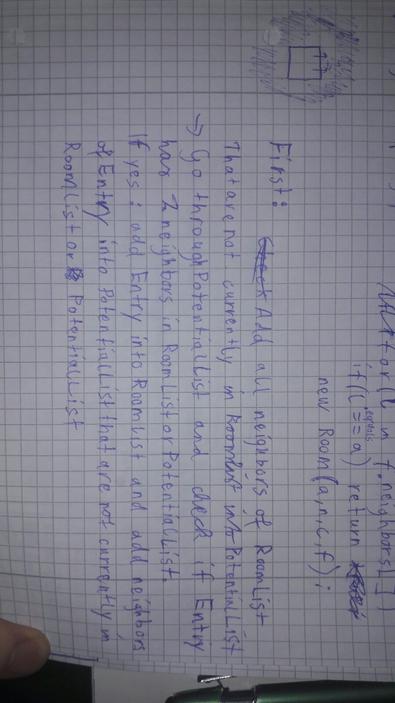 for( l in f.neighbors[]
equals
if( l == a) return
new Room(a,n,c,f);
First:
Check Add all neighbors of RoomList
That are not currently in Roomlist into PotentialList
→ Go through PotentialList and check if Entry
has 2 neighbors in RoomList or PotentialList.
If yes: add Entry into RoomList and add neighbors
of Entry into PotentialList that are not currently in
RoomList or PotentialList